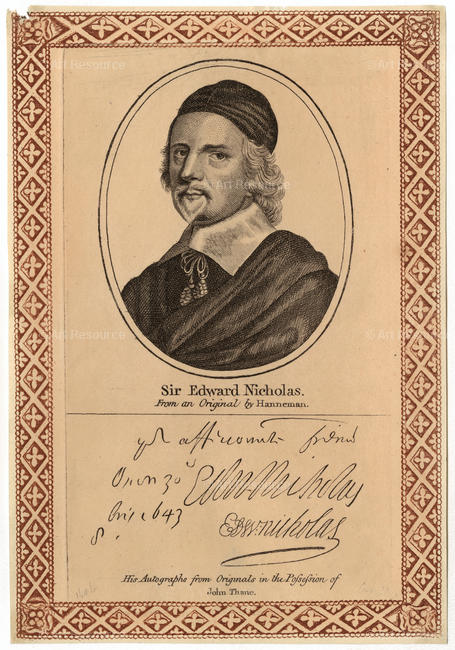 Art Resource
Art Resource
Art Resource
Art Resource
Art Resource
Sir Edward Nicholas.
From an Original by Hanneman.
friend
Oxon 30
Edw. Nicholas
1643
Edw. nicholas
8.
His Autographs from Originals in the Possession of
John Thane.